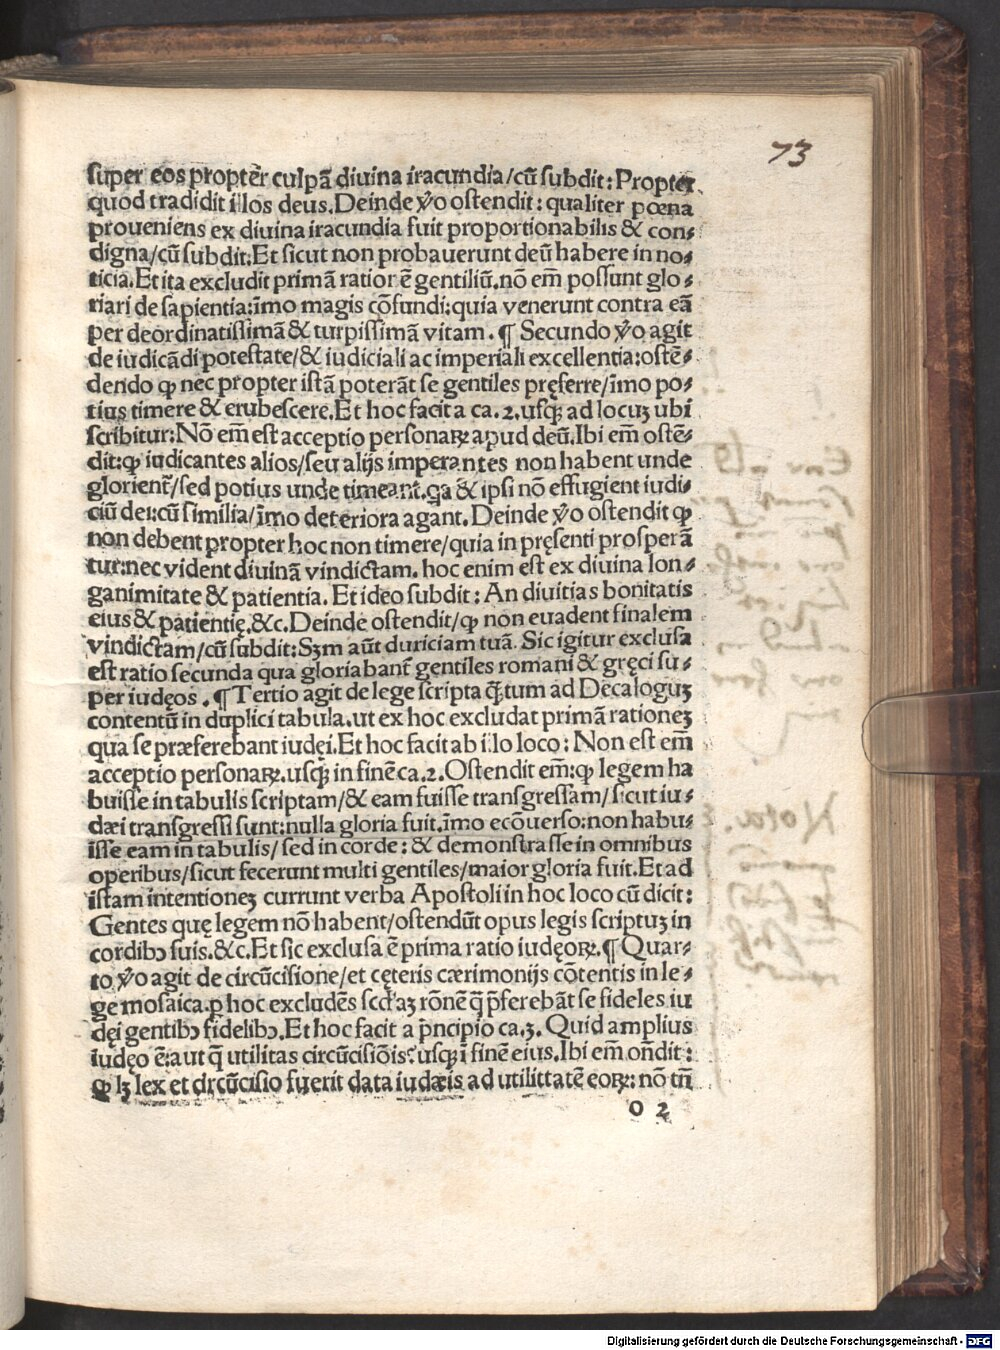 73
super eos propter culpã diuina iracundia/cũ subdit: Propter
quod tradidit illos deus. Deinde v̊o ostendit: qualiter pœna
proueniens ex diuina iracundia fuit proportionabilis & con-
digna/cũ subdit: Et sicut non probauerunt deũ habere in no-
ticia. Et ita excludit primã rationẽ gentiliũ. nõ em̃ possunt glo-
riari de sapientia: ĩmo magis cõfundi: quia venerunt contra eã
per deordinatissimã & turpissimã vitam. ¶ Secundo v̊o agit
de iudicãdi potestate/& iudiciali ac imperiali excellentia: ostẽ-
dendo ꝙ nec propter istã poterãt se gentiles pręferre/ĩmo po-
tius timere & erubescere. Et hoc facit a ca. 2. usqȝ ad locuȝ ubi
scribitur: Nõ em̃ est acceptio personaꝝ apud deũ. Ibi em̃ ostẽ-
dit: ꝙ iudicantes alios/seu alijs imperantes non habent unde
glorient̃/sed potius unde timeant. qa & ipsi nõ effugient iudi-
ciũ dei: cũ similia/ĩmo deteriora agant. Deinde v̊o ostendit ꝙ
non debent propter hoc non timere/quia in pręsenti prosperã
tur: nec vident diuinã vindictam. hoc enim est ex diuina lon-
ganimitate & patientia. Et ideo subdit: An diuitias bonitatis
eius & patientię. &c. Deinde ostendit/ꝙ non euadent finalem
vindictam/cũ subdit: Sȝm aũt duriciam tuã. Sic igitur exclusa
est ratio secunda qua gloriabant̃ gentiles romani & gręci su-
per iudęos. ¶ Tertio agit de lege scripta q̃tum ad Decaloguȝ
contentũ in duplici tabula. ut ex hoc excludat primã rationeȝ
qua se præferebant iudęi. Et hoc facit ab illo loco: Non est em̃
acceptio personaꝝ. usqȝ in finẽ ca. 2. Ostendit em̃: ꝙ legem ha
buisse in tabulis scriptam/& eam fuisse transgressam/sicut iu-
dæi transgressi sunt: nulla gloria fuit. ĩmo ecõuerso: non habu-
isse eam in tabulis/sed in corde: & demonstrasse in omnibus
operibus/sicut fecerunt multi gentiles/maior gloria fuit. Et ad
istam intentioneȝ currunt verba Apostoli in hoc loco cũ dicit:
Gentes quę legem nõ habent/ostendũt opus legis scriptuȝ in
cordibꝰ suis. &c. Et sic exclusa ẽ prima ratio iudęoꝝ. ¶ Quar-
to v̊o agit de circũcisione/et cęteris cærimonijs cõtentis in le-
ge mosaica. ꝑ hoc excludẽs scd'aȝ rõnẽ q̃ p̃ferebãt se fideles iu
dęi gentibꝰ fidelibꝰ. Et hoc facit a p̃ncipio ca. 3. Quid amplius
iudęo ẽ: aut q̃ utilitas circũcisiõis? usqȝ ĩ finẽ eius. Ibi em̃ oñdit:
ꝙ lȝ lex et circũcisio fuerit data iudæis ad utilittatẽ eoꝝ: nõ tñ
o 2
Digitalisierung gefördert durch die Deutsche Forschungsgemeinschaft - DFG